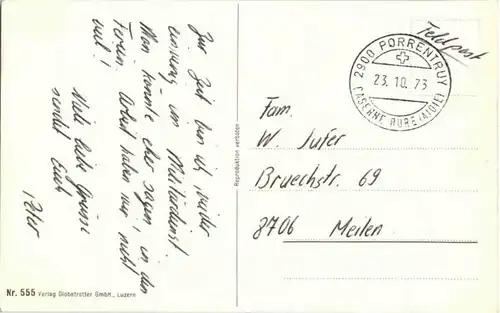 Zur Zeit bin ich wieder
einmal im Militärdienst.
Man könnte eher sagen, in den
Ferien. Arbeit haben wir nicht
viel!
Viele liebe Grüsse
sendet Euch
Peter
Nr. 555 Verlag Globetrotter GmbH., Luzern
Reproduktion verboten
Feldpost
2900 PORRENTRUY
23.10.73
CASERNE BURE (AJOIE)
Fam.
W. Jufer
Bruechstr. 69
8706 Meilen